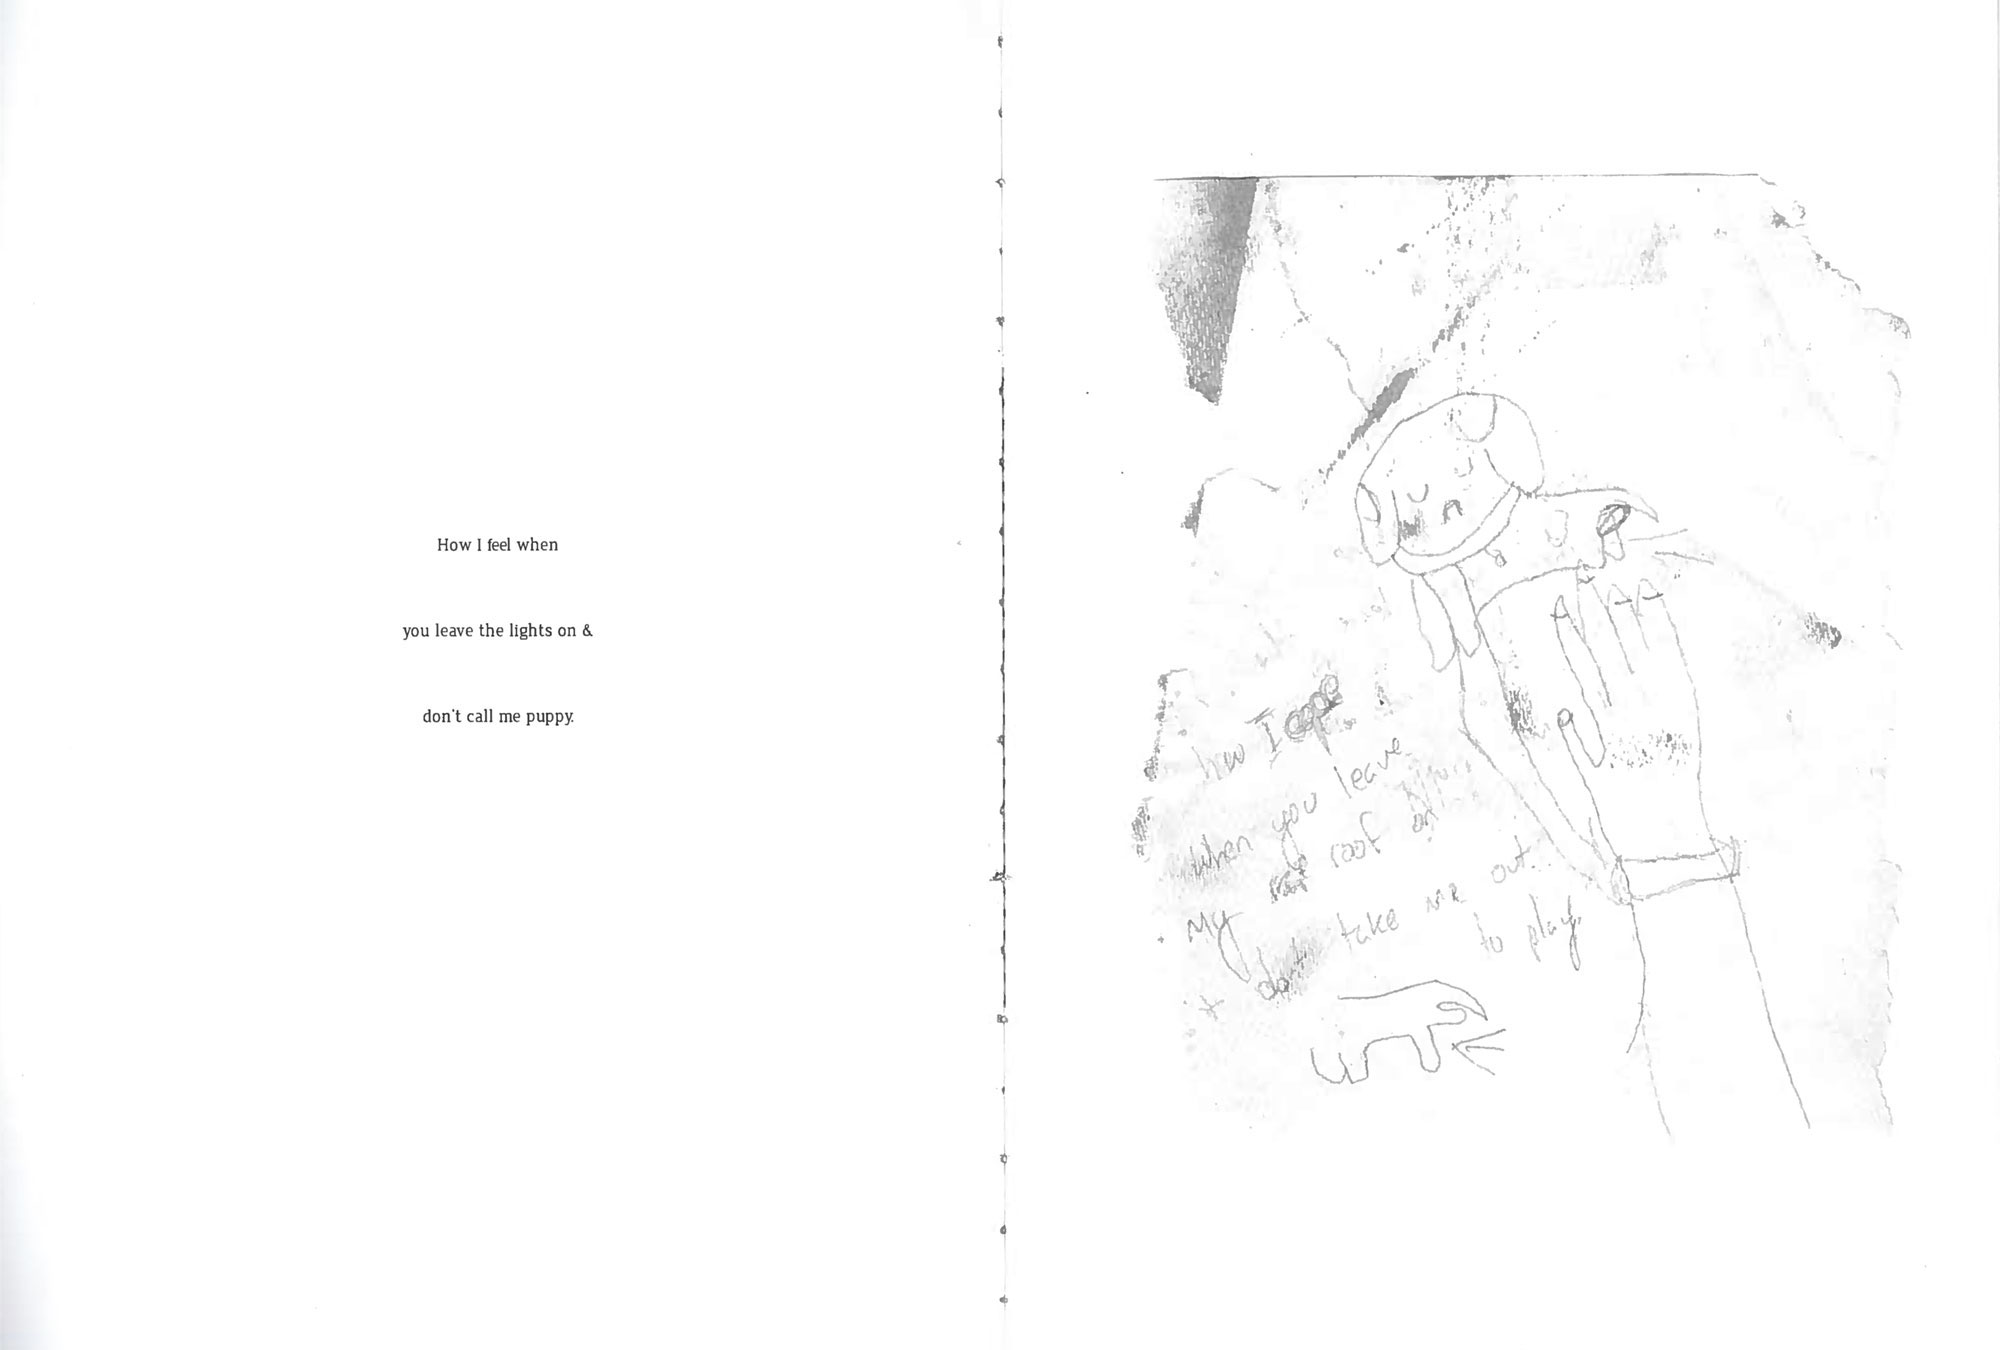 How I feel when
you leave the lights on &
don't call me puppy.
how I cope
when you leave
my roof on
& don't take me out
to play.